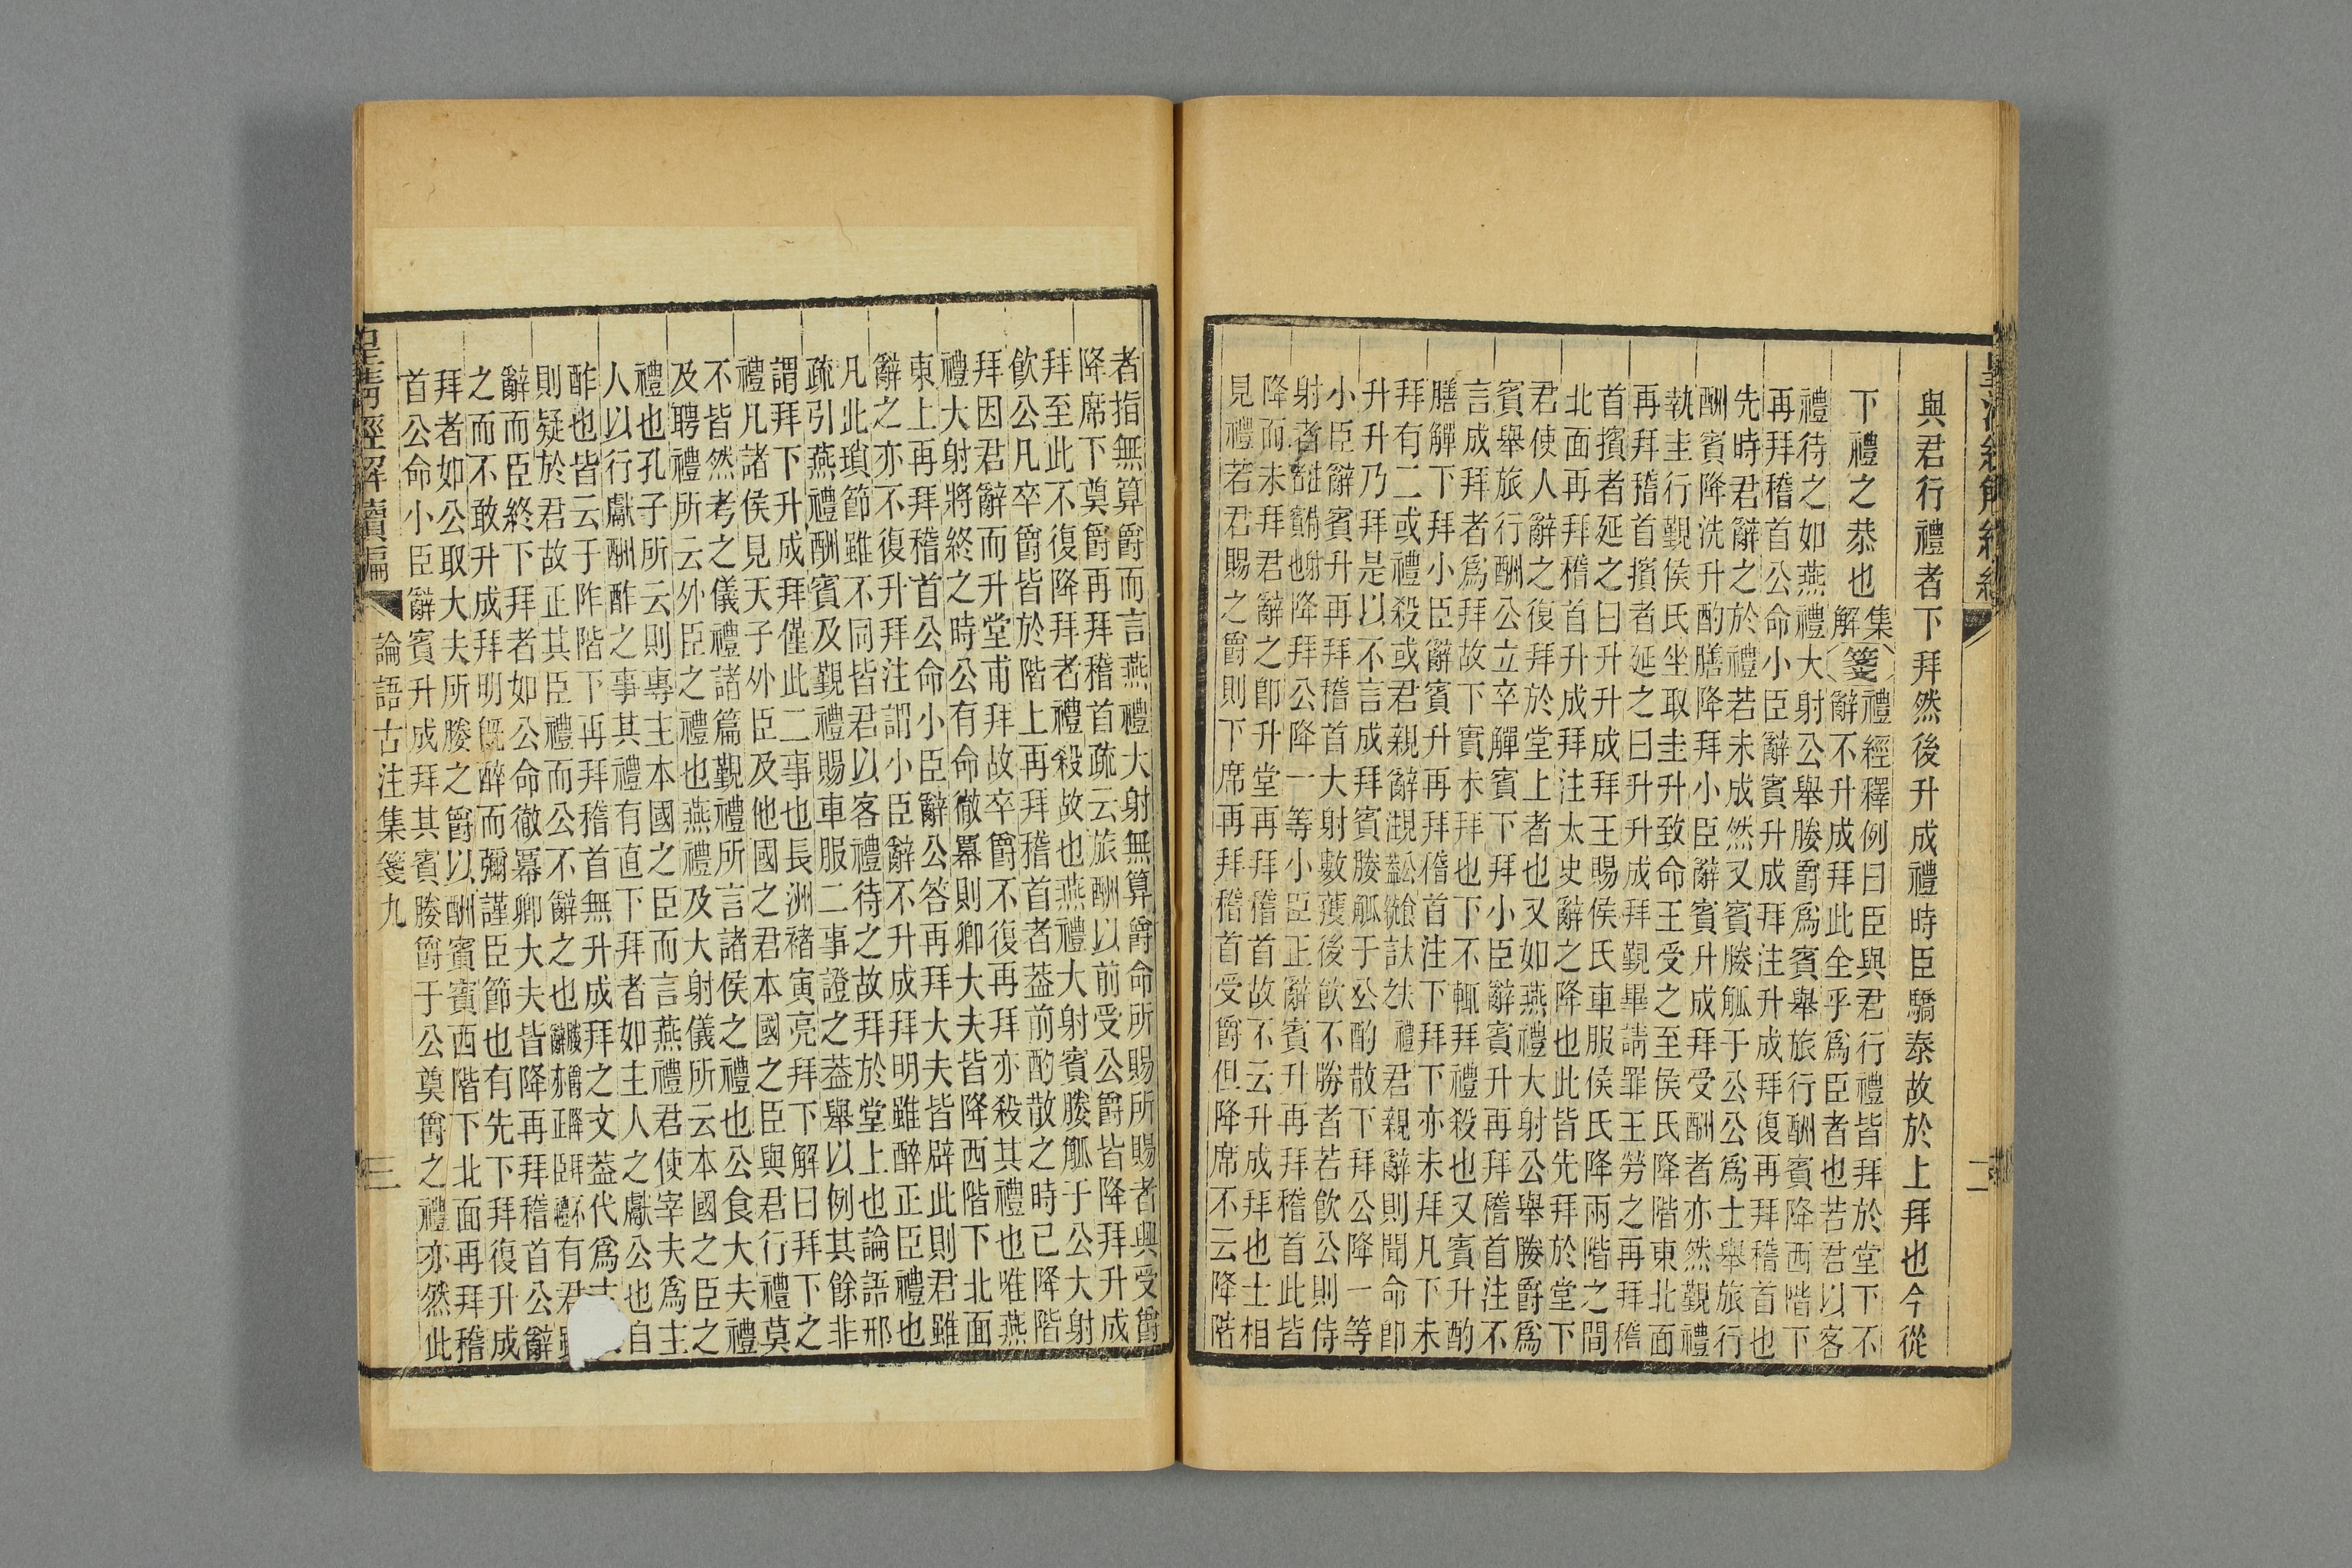 皇清經解續編
二
與君行禮者下拜然後升成禮時臣驕泰故於上拜也今從
下禮之恭也 集解 箋 禮經釋例曰臣與君行禮皆拜於堂下不
辭不升成拜此全乎爲臣者也若君以客
禮待之如燕禮大射公舉媵爵爲賓舉旅行酬賓降西階下
再拜稽首公命小臣辭賓升成拜注升成拜復再拜稽首也
先時君辭之於禮若未成然又賓媵觚于公公爲士舉旅行
酬賓降洗升酌膳降拜小臣辭賓升成拜受酬者亦然覲禮
執圭行覲侯氏坐取圭升致命王受之至侯氏降階東北面
再拜稽首擯者延之曰升升成拜覲畢請罪王勞之再拜稽
首擯者延之曰升升成拜王賜侯氏車服侯氏降兩階之間
北面再拜稽首升成拜注太史辭之降也此皆先拜於堂下
君使人辭之復拜於堂上者也又如燕禮大射公舉媵爵爲
賓舉旅行酬公立卒觶賓下拜小臣辭賓升再拜稽首注不
言成拜者爲拜故下實未拜也下不輒拜禮殺也又賓升酌
膳觶下拜小臣辭賓升再拜稽首注下拜下亦未拜凡下未
拜有二或禮殺或君親辭君親辭則聞命即
升升乃拜是以不言成拜賓媵觚于公酌散下拜公降一等
小臣辭賓升再拜稽首大射數獲後飲不勝者若飲公則侍
射者降拜公降一等小臣正辭賓升再拜稽首此皆
降而未拜君辭之即升堂再拜稽首故不云升成拜也士相
見禮若君賜之爵則下席再拜稽首受爵但降席不云降階
者指無算爵而言燕禮大射無算爵命所賜所賜者興受爵
降席下奠爵再拜稽首疏云旅酬以前受公爵皆降拜升成
拜至此不復降拜者禮殺故也燕禮大射賓媵觚于公大射
飲公凡卒爵皆於階上再拜稽首者蓋前酌散之時已降階
拜因君辭而升堂甫拜故卒爵不復再拜亦殺其禮也唯燕
禮大射將終之時公有命徹冪則卿大夫皆降西階下北面
東上再拜稽首公命小臣辭公答再拜大夫皆辟此則君雖
辭之亦不復升拜注謂小臣辭不升成拜明雖醉正臣禮也
凡此瑣節雖不同皆君以客禮待之故拜於堂上也論語邢
疏引燕禮酬賓及覲禮賜車服二事證之蓋舉以例其餘非
謂拜下升成拜僅此二事也長洲褚寅亮拜下解曰拜下之
禮凡諸侯見天子外臣及他國之君本國之臣與君行禮莫
不皆然考之儀禮諸篇覲禮所言諸侯之禮也公食大夫禮
及聘禮所云外臣之禮也燕禮及大射儀所云本國之臣之
禮也孔子所云則專主本國之臣而言燕禮君使宰夫爲主
人以行獻酬酢之事其禮有直下拜者如主人之獻公也自
酢也皆云于阼階下再拜稽首無升成拜之文蓋代爲
則疑於君故正其臣禮而公不辭之也媵爵降拜不辭亦正臣禮有君
辭而臣終下拜者如公命徹冪卿大夫皆降再拜稽首公辭
之而不敢升成拜明既醉而彌謹臣節也有先下拜復升成
拜者如公取大夫所媵之爵以酬賓賓西階下北面再拜稽
首公命小臣辭賓升成拜其賓媵爵于公奠爵之禮亦然此
皇清經解續編
論語古注集箋九
三